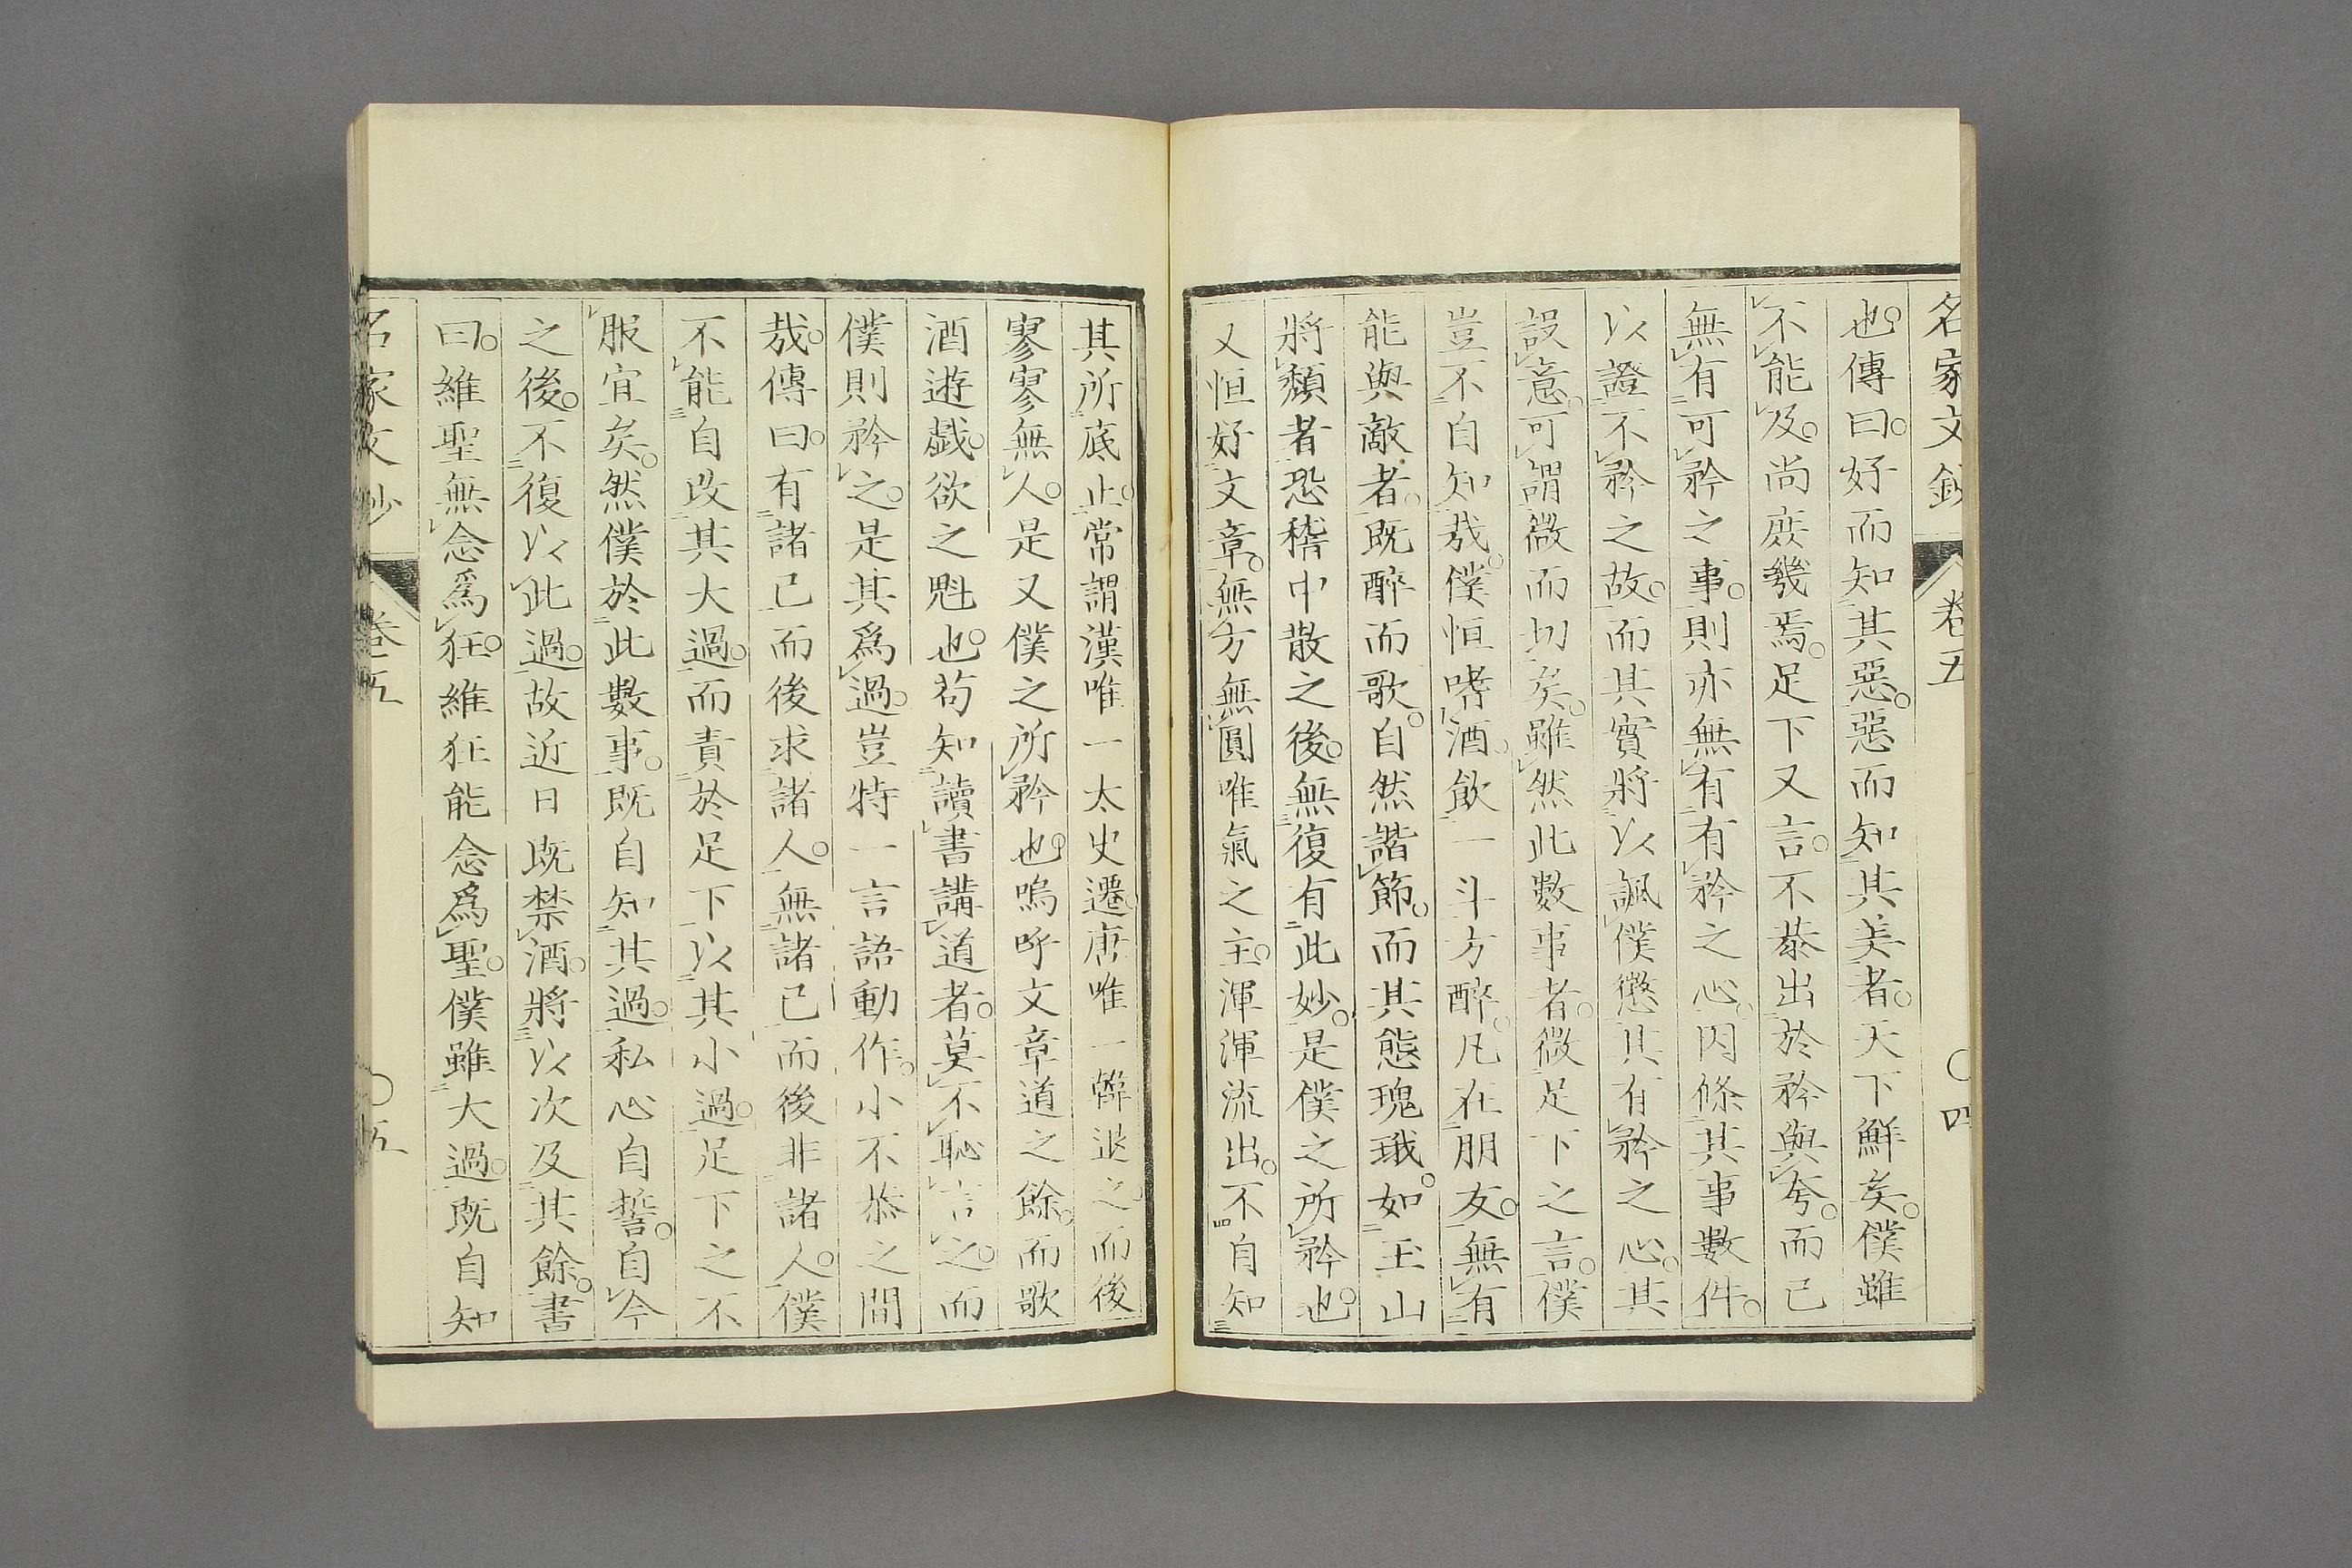 名家文鈔 卷五 ○四
也傳曰好而知其惡惡而知其美者天下鮮矣僕雖
不能及尚庶幾焉足下又言不恭出於矜與夸而已
無有可矜之事則亦無有有矜之心因條其事數件
以證不矜之故而其實將以諷僕懲其有矜之心其
設意可謂微而切矣雖然此數事者微足下之言僕
豈不自知哉僕恒嗜酒飲一斗方醉凡在朋友無有
能與敵者既醉而歌自然諧節而其態瑰珴如玉山
將頽者恐稽中散之後無復有此妙是僕之所矜也
又恒好文章無方無圓唯氣之主渾渾流出不自知
其所底止常謂漢唯一太史遷唐唯一韓退之而後
寥寥無人是又僕之所矜也嗚呼文章道之餘而歌
酒遊戲欲之魁也苟知讀書講道者莫不恥言之而
僕則矜之是其爲過豈特一言語動作小不恭之間
哉傳曰有諸已而後求諸人無諸已而後非諸人僕
不能自改其大過而責於足下以其小過足下之不
服宜矣然僕於此數事既自知其過私心自誓自今
之後不復以此過故近日既禁酒將以次及其餘書
曰維聖無念爲狂維狂能念爲聖僕雖大過既自知
名家文鈔 卷五 ○五